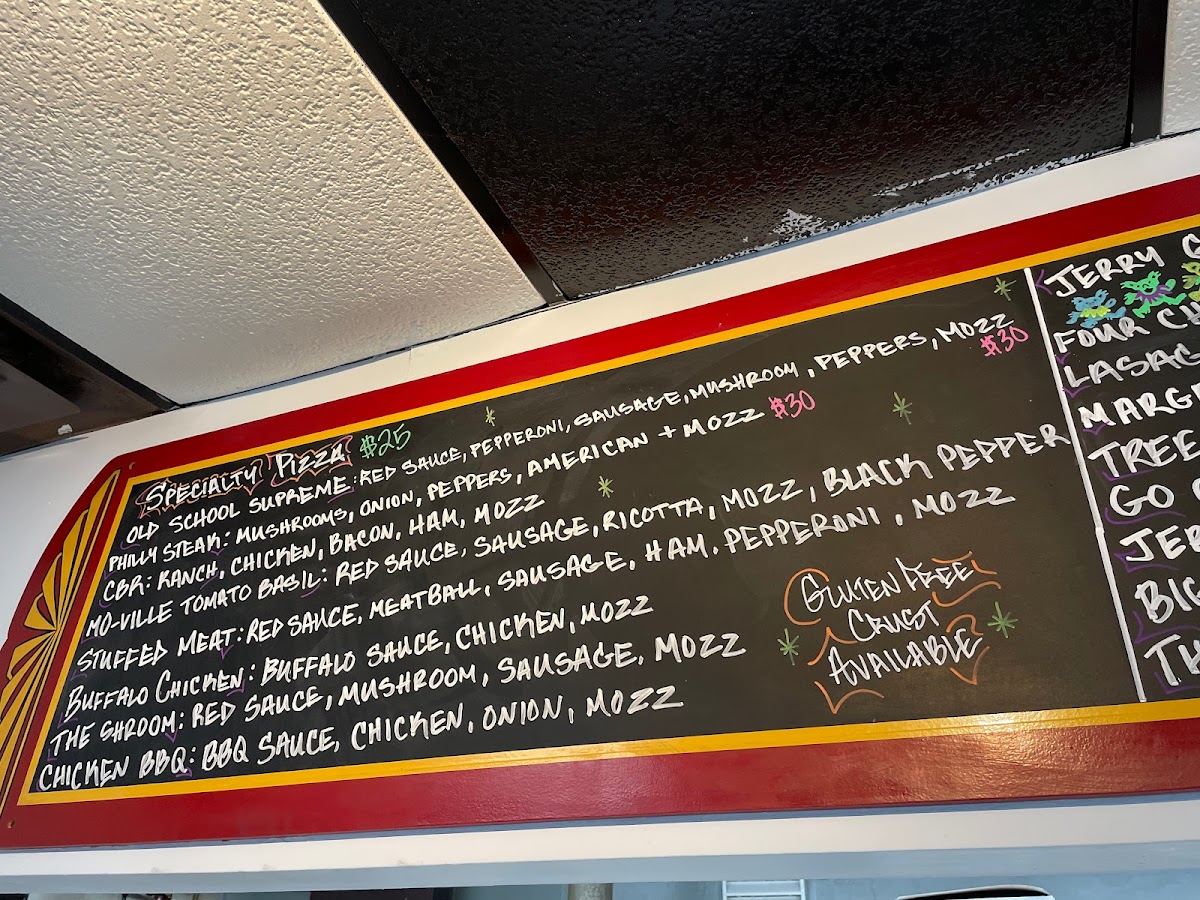 SPECIALTY PIZZA $25
OLD SCHOOL SUPREME: RED SAUCE, PEPPERONI, SAUSAGE, MUSHROOM, PEPPERS, MOZZ $30
PHILLY STEAK: MUSHROOMS, ONION, PEPPERS, AMERICAN + MOZZ $30
CBR: RANCH, CHICKEN, BACON, HAM, MOZZ
MO-VILLE TOMATO BASIL: RED SAUCE, SAUSAGE, RICOTTA, MOZZ, BLACK PEPPER
STUFFED MEAT: RED SAUCE, MEATBALL, SAUSAGE, HAM. PEPPERONI, MOZZ
BUFFALO CHICKEN: BUFFALO SAUCE, CHICKEN, MOZZ
THE SHROOM: RED SAUCE, MUSHROOM, SAUSAGE, MOZZ
CHICKEN BBQ: BBQ SAUCE, CHICKEN, ONION, MOZZ
GLUTEN FREE
CRUST
AVAILABLE
JERRY
FOUR
TREE
GO